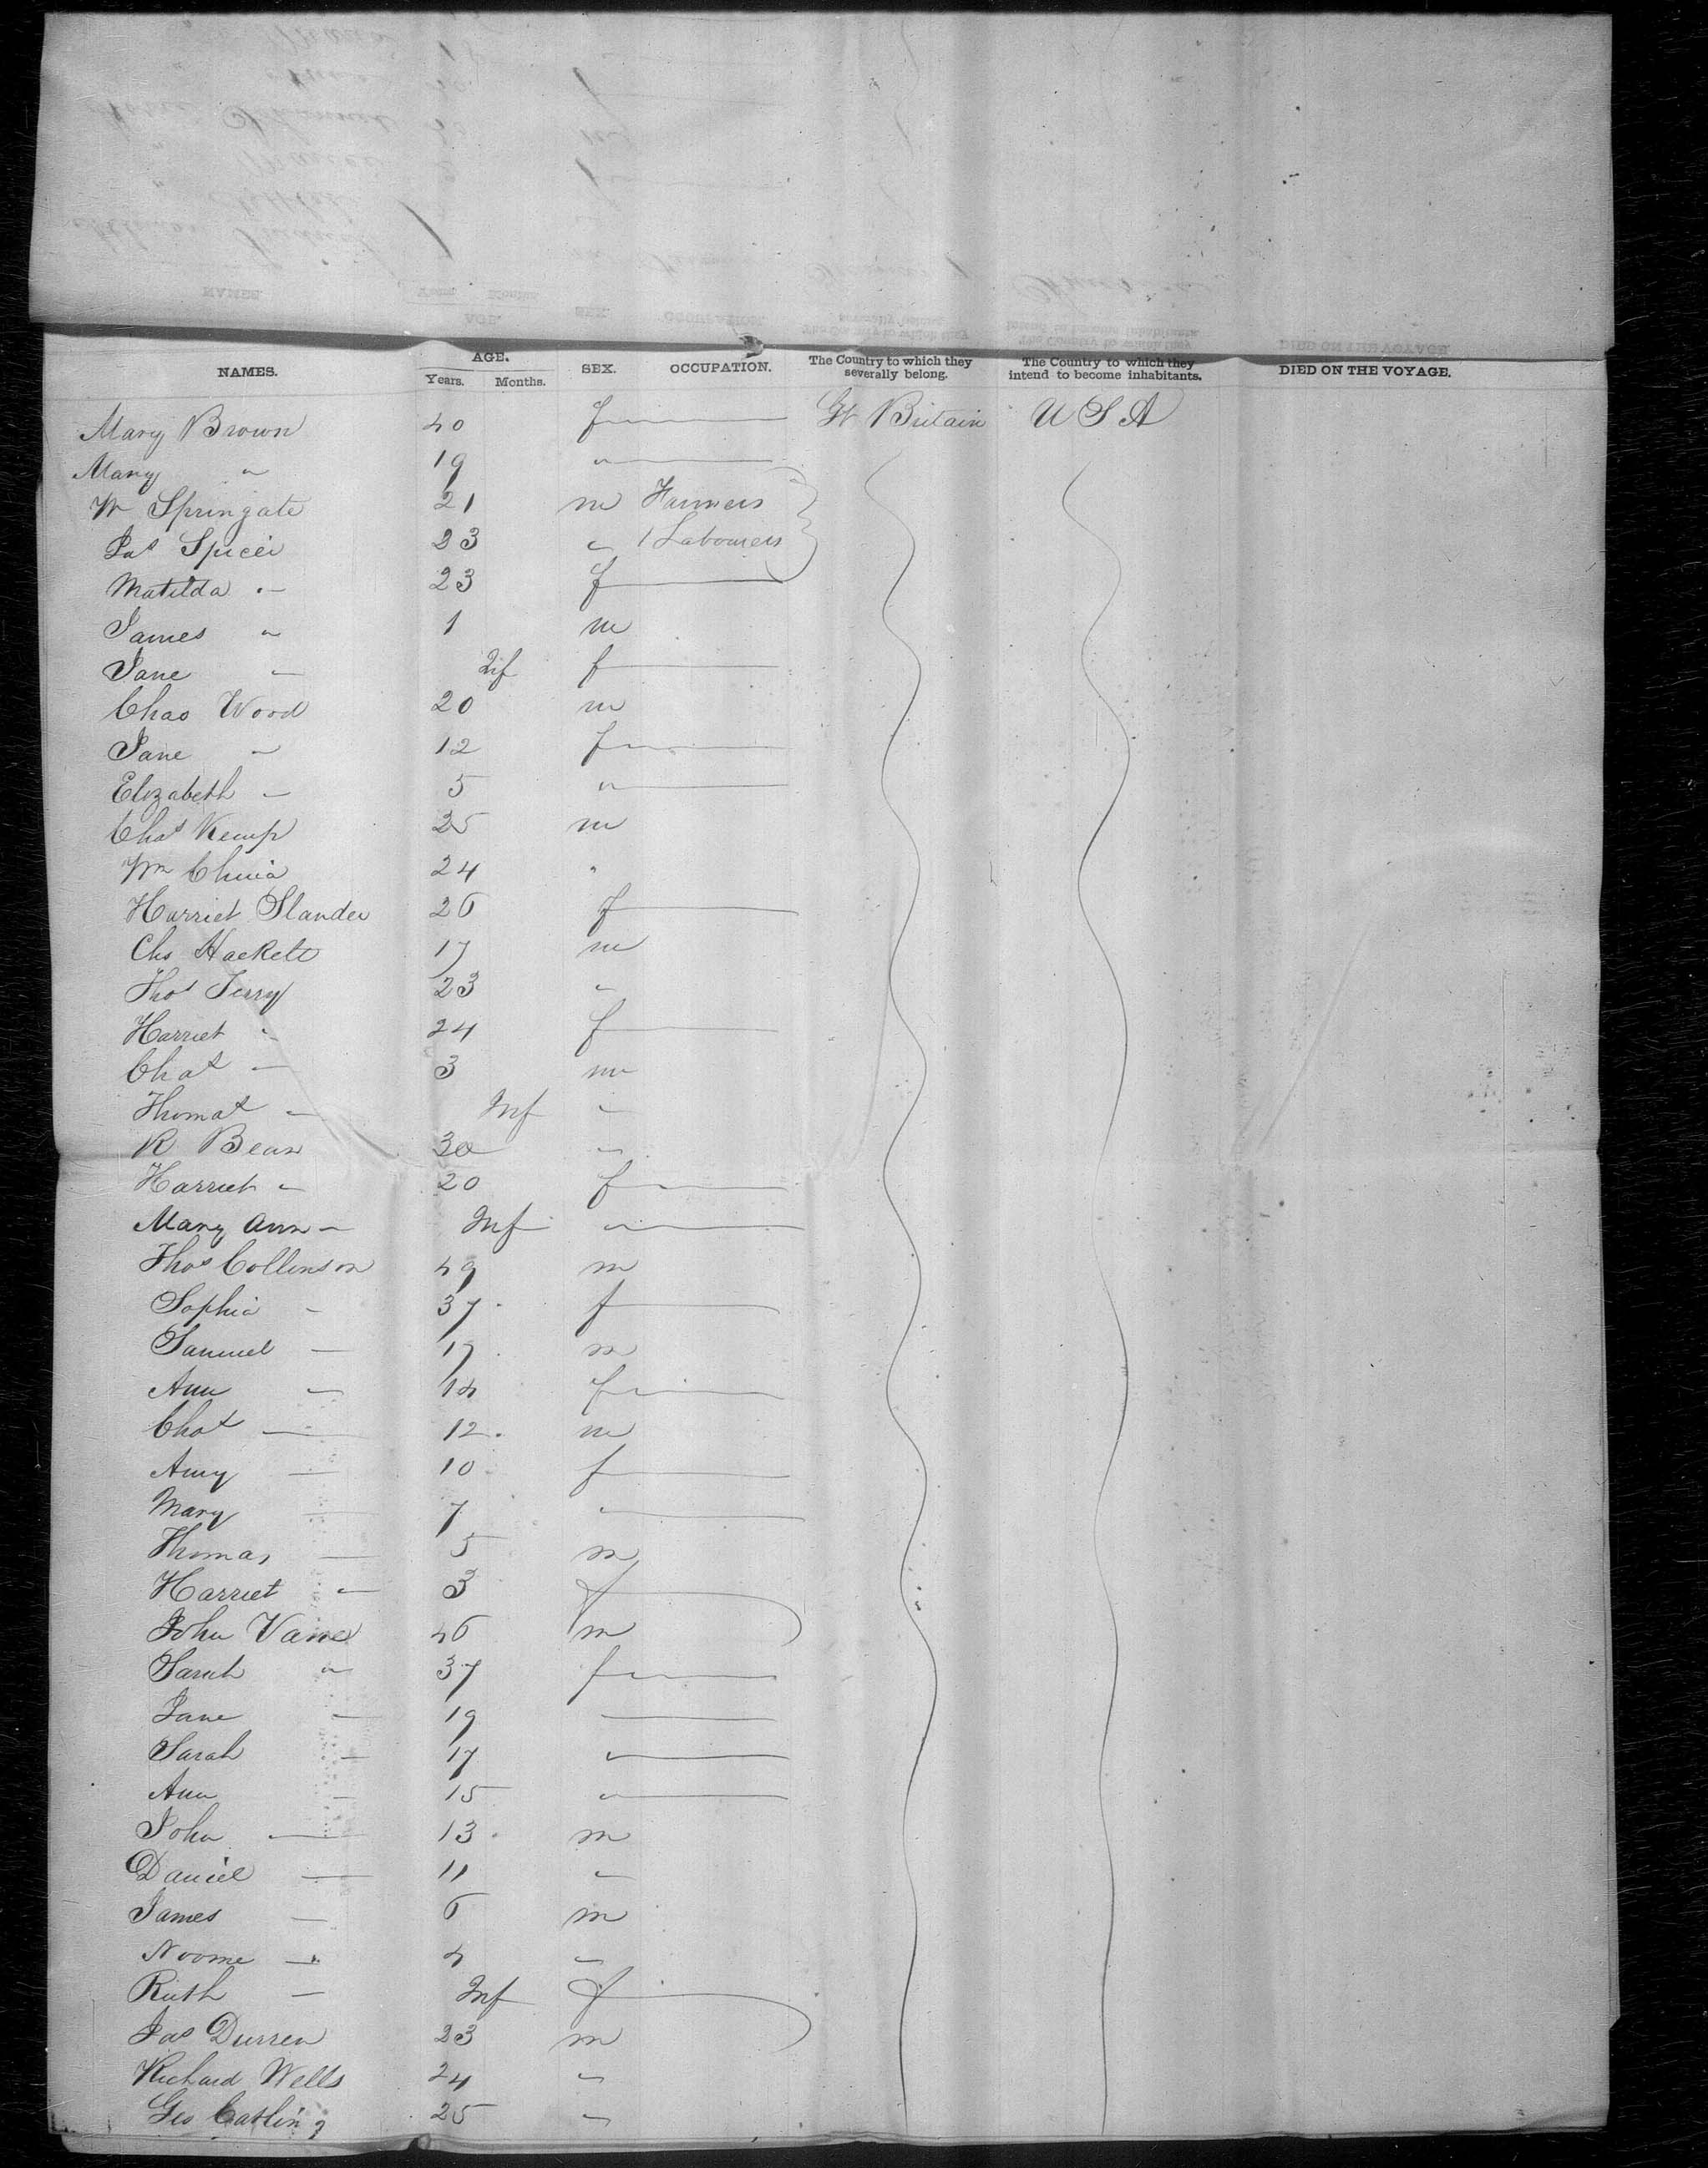 NAMES. AGE. Years. Months. SEX. OCCUPATION. The Country to which they severally belong. The Country to which they intend to become inhabitants. DIED ON THE VOYAGE.
Mary Brown 40 f Gt Britain U S A
Mary " 19 "
Wm Springate 21 m Farmers
Jas Spicer 23 " / Labourers
Matilda " 23 f
James " 1 m
Jane " Inf f
Chas Wood 20 m
Jane " 12 f
Elizabeth " 5 "
Chas Kemp 25 m
Wm 24 "
Harriet 26 f
Chs Hackett 17 m
Thos Terry 23 "
Harriet " 24 f
Chas " 3 m
Thomas " Inf "
R Bean 30 "
Harriet " 20 f
Mary Ann " Inf "
Thos Collinson 49 m
Sophia " 37 f
Samuel " 17 m
Ann " 14 f
Chas " 12 m
Amy " 10 f
Mary " 7 "
Thomas " 5 m
Harriet " 3 f
John Vane 46 m
Sarah " 37 f
Jane " 19
Sarah " 17 "
Ann " 15 "
John " 13 m
Daniel " 11 "
James " 6 m
Noome " 4 "
Ruth " Inf f
Jas Durren 23 m
Richard Wells 24 "
Geo Catling 25 "